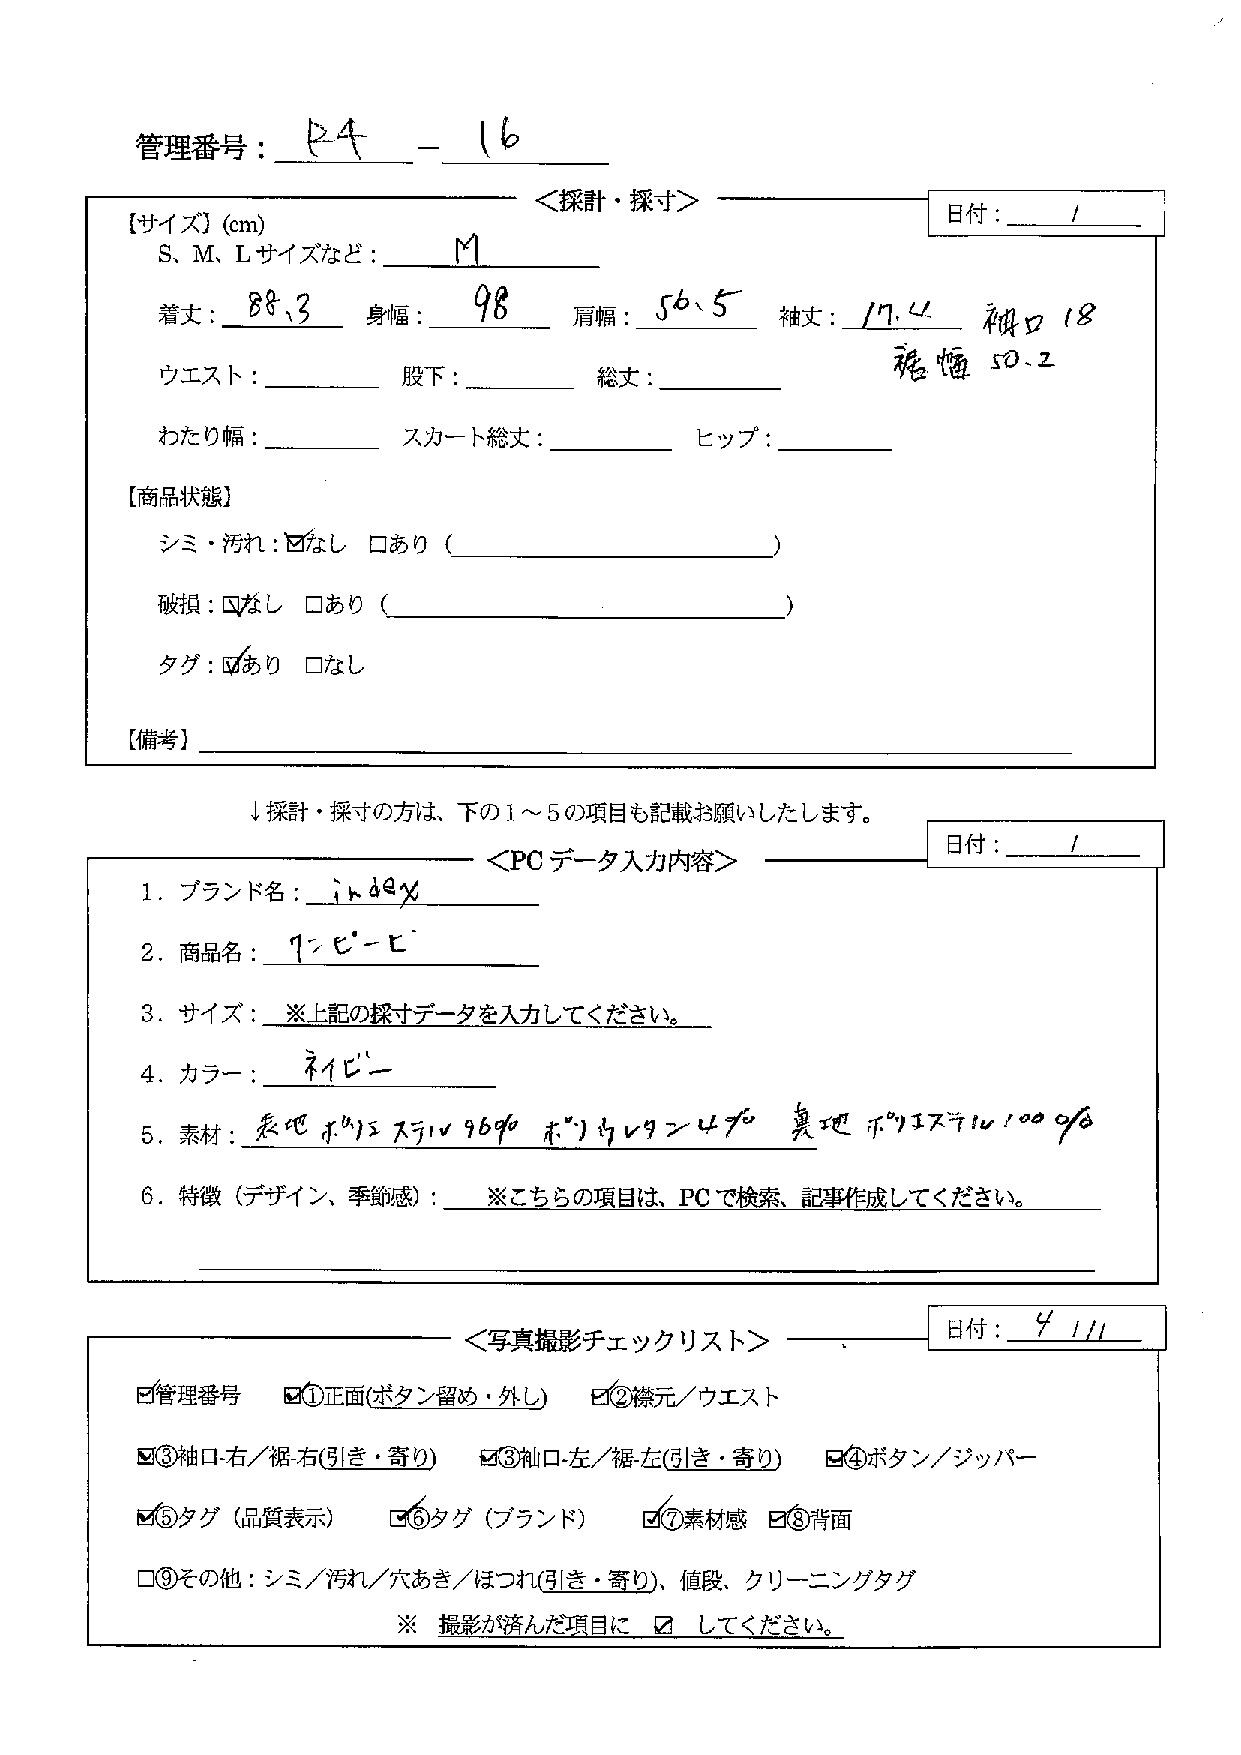 管理番号：R4 － 16
＜採計・採寸＞
日付： /
【サイズ】(cm)
S、M、Lサイズなど： M
着丈： 88.3 身幅： 98 肩幅： 56.5 袖丈： 17.4 袖口 18
裾幅 50.2
ウエスト： 股下： 総丈：
わたり幅： スカート総丈： ヒップ：
【商品状態】
シミ・汚れ：☑なし □あり（ ）
破損：☑なし □あり（ ）
タグ：☑あり □なし
【備考】
↓採計・採寸の方は、下の１～５の項目も記載お願いしたします。
日付： /
＜PCデータ入力内容＞
1．ブランド名： index
2．商品名： ワンピーピ
3．サイズ： ※上記の採寸データを入力してください。
4．カラー： ネイビー
5．素材： 表地 ポリエステル96% ポリウレタン4% 裏地 ポリエステル100%
6．特徴（デザイン、季節感）： ※こちらの項目は、PCで検索、記事作成してください。
日付： 4 / 11
＜写真撮影チェックリスト＞
☑管理番号 ☑①正面(ボタン留め・外し) ☑②襟元／ウエスト
☑③袖口-右／裾-右(引き・寄り) ☑③袖口-左／裾-左(引き・寄り) ☑④ボタン／ジッパー
☑⑤タグ（品質表示） ☑⑥タグ（ブランド） ☑⑦素材感 ☑⑧背面
□⑨その他：シミ／汚れ／穴あき／ほつれ(引き・寄り)、値段、クリーニングタグ
※ 撮影が済んだ項目に ☑ してください。